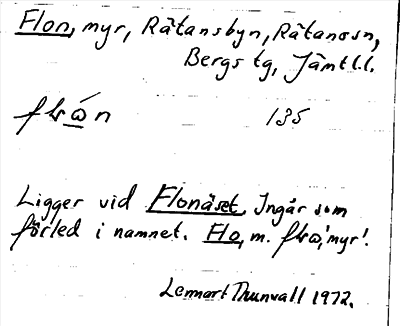 Flon, myr, Rätansbyn, Rätans sn,
Bergs tg, Jämtl.l.
135
Ligger vid Flonäset. Ingår som
förled i namnet. Flo, m. 'myr'.
Lennart Thunvall 1972.